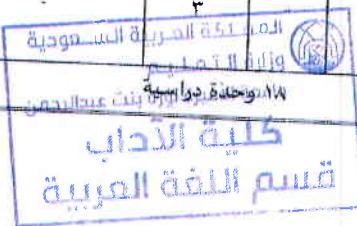 ٣
المملكة العربية السعودية
وزارة التعليم
١٨ وحدة دراسية
بنت عبدالرحمن
كلية الآداب
قسم اللغة العربية